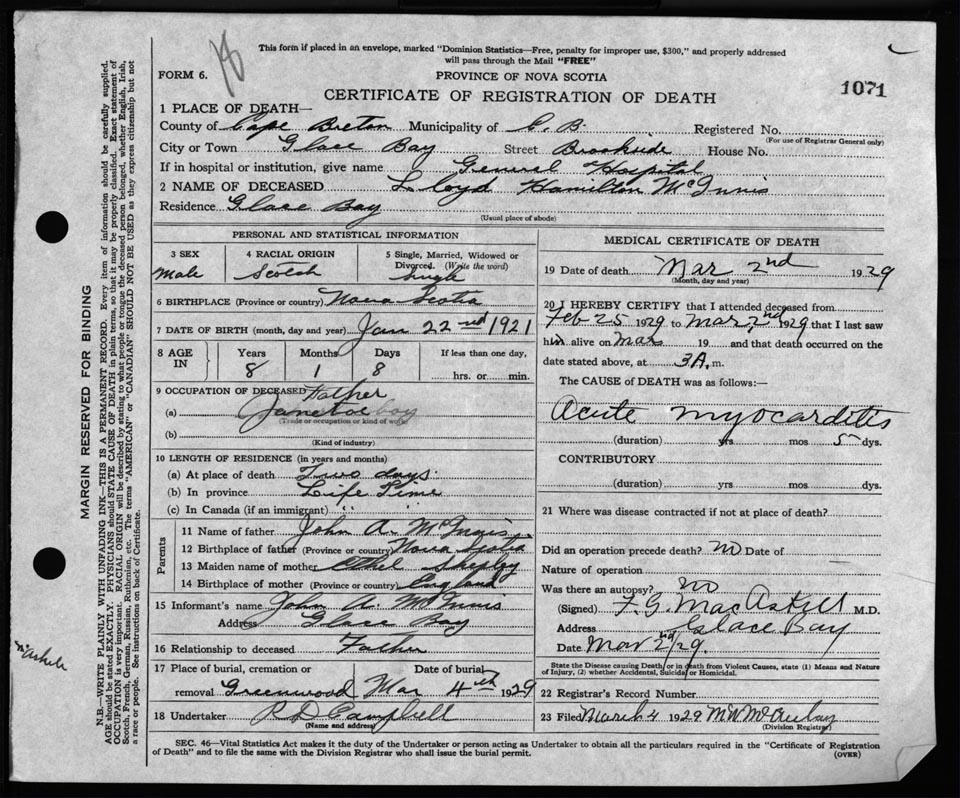 This form if placed in an envelope, marked "Dominion Statistics—Free, penalty for improper use, $300," and properly addressed
will pass through the Mail "FREE"
FORM 6.
PROVINCE OF NOVA SCOTIA
CERTIFICATE OF REGISTRATION OF DEATH
1071
1 PLACE OF DEATH—
County of Cape Breton Municipality of C. B. Registered No.
(For use of Registrar General only)
City or Town Glace Bay Street Brookside House No.
If in hospital or institution, give name General Hospital
2 NAME OF DECEASED Lloyd Hamilton McInnis
Residence Glace Bay
(Usual place of abode)
PERSONAL AND STATISTICAL INFORMATION
3 SEX
Male
4 RACIAL ORIGIN
Scotch
5 Single, Married, Widowed or
Divorced. (Write the word)
Single
6 BIRTHPLACE (Province or country) Nova Scotia
7 DATE OF BIRTH (month, day and year) Jan 22nd 1921
8 AGE IN
Years Months Days If less than one day,
8 1 8 hrs. or min.
9 OCCUPATION OF DECEASED Father
(a) boy
(Trade or occupation or kind of work)
(b)
(Kind of industry)
10 LENGTH OF RESIDENCE (in years and months)
(a) At place of death Two days.
(b) In province Life Time
(c) In Canada (if an immigrant) " "
Parents
11 Name of father John A. McInnis
12 Birthplace of father (Province or country) Nova Scotia
13 Maiden name of mother Ethel Shepley
14 Birthplace of mother (Province or country) England
15 Informant's name John A. McInnis
Address Glace Bay
16 Relationship to deceased Father
17 Place of burial, cremation or Date of burial
removal Greenwood Mar 4th 1929
18 Undertaker R D Campbell
(Name and address)
MEDICAL CERTIFICATE OF DEATH
19 Date of death Mar 2nd 1929
(Month, day and year)
20 I HEREBY CERTIFY that I attended deceased from
Feb 25 1929 to Mar 2nd 1929 that I last saw
him alive on Mar 19 and that death occurred on the
date stated above, at 3 A. m.
The CAUSE of DEATH was as follows:
Acute myocarditis
(duration) yrs mos 5 dys.
CONTRIBUTORY
(duration) yrs mos dys.
21 Where was disease contracted if not at place of death?
Did an operation precede death? no Date of
Nature of operation
Was there an autopsy? no
(Signed) F. G. MacAskill M.D.
Address Glace Bay
Date Mar 2nd/29.
State the Disease causing Death, or in death from Violent Causes, state (1) Means and Nature
of Injury, (2) whether Accidental, Suicidal or Homicidal.
22 Registrar's Record Number
23 Filed March 4 1929 M.W. McAulay
(Division Registrar)
SEC. 46—Vital Statistics Act makes it the duty of the Undertaker or person acting as Undertaker to obtain all the particulars required in the "Certificate of Registration
of Death" and to file the same with the Division Registrar who shall issue the burial permit.
(OVER)
MARGIN RESERVED FOR BINDING
N.B.—WRITE PLAINLY WITH UNFADING INK—THIS IS A PERMANENT RECORD. Every item of information should be carefully supplied.
AGE should be stated EXACTLY. PHYSICIANS should STATE CAUSE OF DEATH in plain terms, so that it may be properly classified. Exact statement of
OCCUPATION is very important. RACIAL ORIGIN will be described by stating to what people or tongue the deceased person belonged, whether English, Irish,
Scotch, French, German, Russian, Ruthenian, etc. The terms "AMERICAN" or "CANADIAN" SHOULD NOT BE USED as they express citizenship but not
a race or people. See instructions on back of Certificate.